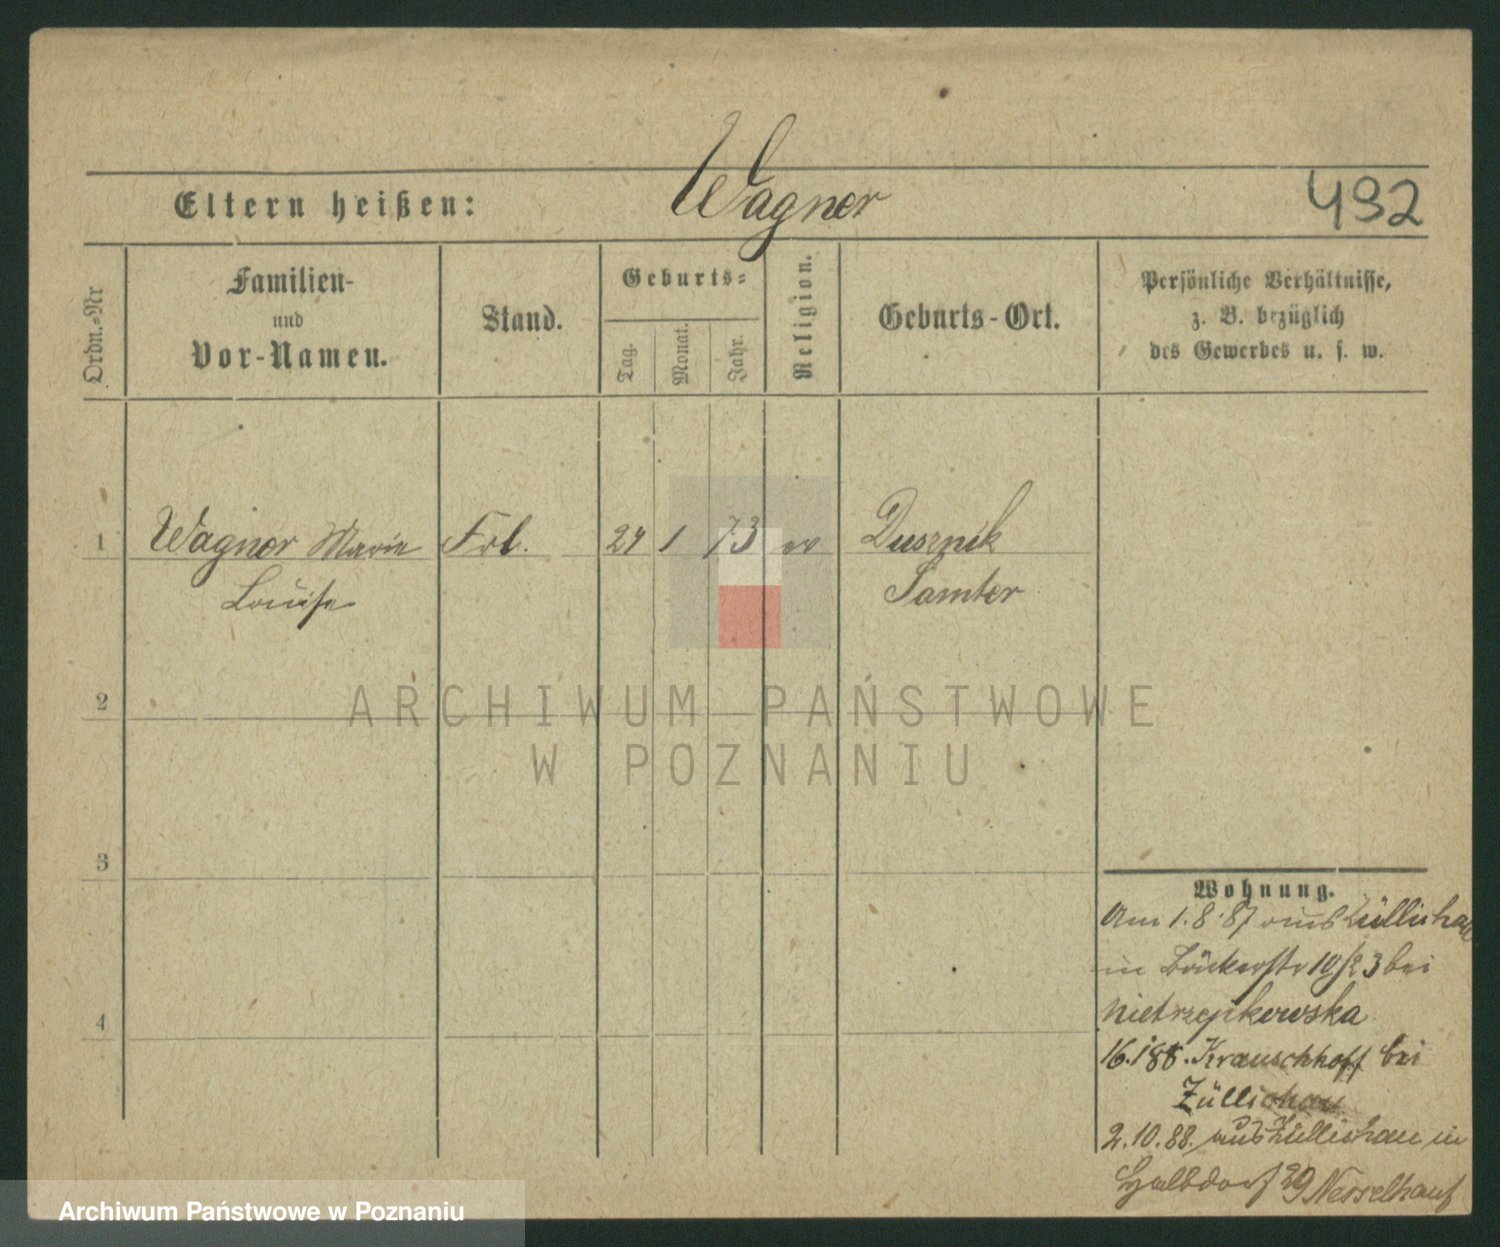 Wagner
Eltern heißen:
492
Ordn.-Nr
Familien-
und
Vor-Namen.
Stand.
Geburts-
Tag.
Monat.
Jahr.
Religion.
Geburts-Ort.
Persönliche Verhältnisse,
z. B. bezüglich
des Gewerbes u. s. w.
1 Wagner Marie Frl. 24 1 73 ev Dusznik
Louise Samter
2
ARCHIWUM PAŃSTWOWE
W POZNANIU
3
4
Wohnung.
Am 1.8.87 aus Züllichau
in Bäckerstr 10/23 bei
Nietrzepkowska
16.1 88. Krauschhoff bei
Züllichau
2.10.88. aus Züllichau in
Halbdorf 29
Archiwum Państwowe w Poznaniu